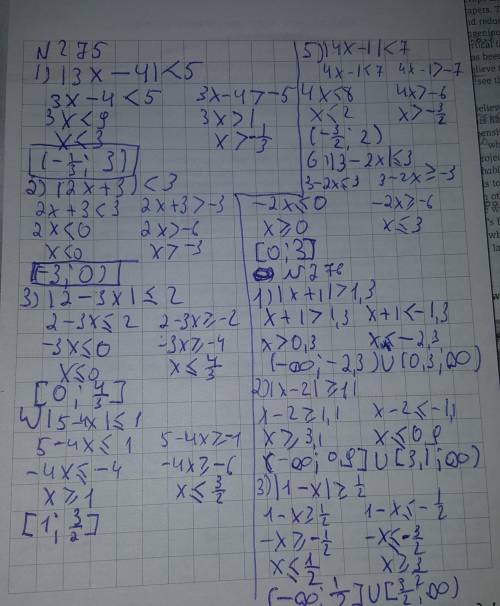 N275
1) |3x-4|<5
3x-4<5 3x-4>-5
3x<9 3x>1
x<3 x>-1/3
(-1/3; 3)
2) |2x+3|<3
2x+3<3 2x+3>-3
2x<0 2x>-6
x<0 x>-3
(-3; 0)
3) |2-3x|≤2
2-3x≤2 2-3x≥-2
-3x≤0 -3x≥-4
x≤0 x≤4/3
[0; 4/3]
4) |5-4x|≤1
5-4x≤1 5-4x≥-1
-4x≤-4 -4x≥-6
x≥1 x≤3/2
[1; 3/2]
5) |4x-1|<7
4x-1<7 4x-1>-7
4x≤8 4x>-6
x≤2 x>-3/2
(-3/2; 2)
6) |3-2x|≤3
3-2x≤3 3-2x≥-3
-2x≤0 -2x≥-6
x≥0 x≤3
[0; 3]
N276
1) |x+1|>1,3
x+1>1,3 x+1<-1,3
x>0,3 x<-2,3
(-∞; -2,3)∪(0,3; ∞)
2) |x-2|≥1,1
x-2≥1,1 x-2≤-1,1
x≥3,1 x≤0,9
(-∞; 0,9]∪[3,1; ∞)
3) |1-x|≥1/2
1-x≥1/2 1-x≤-1/2
-x≥-1/2 -x≤-3/2
x≤1/2 x≥3/2
(-∞; 1/2]∪[3/2; ∞)